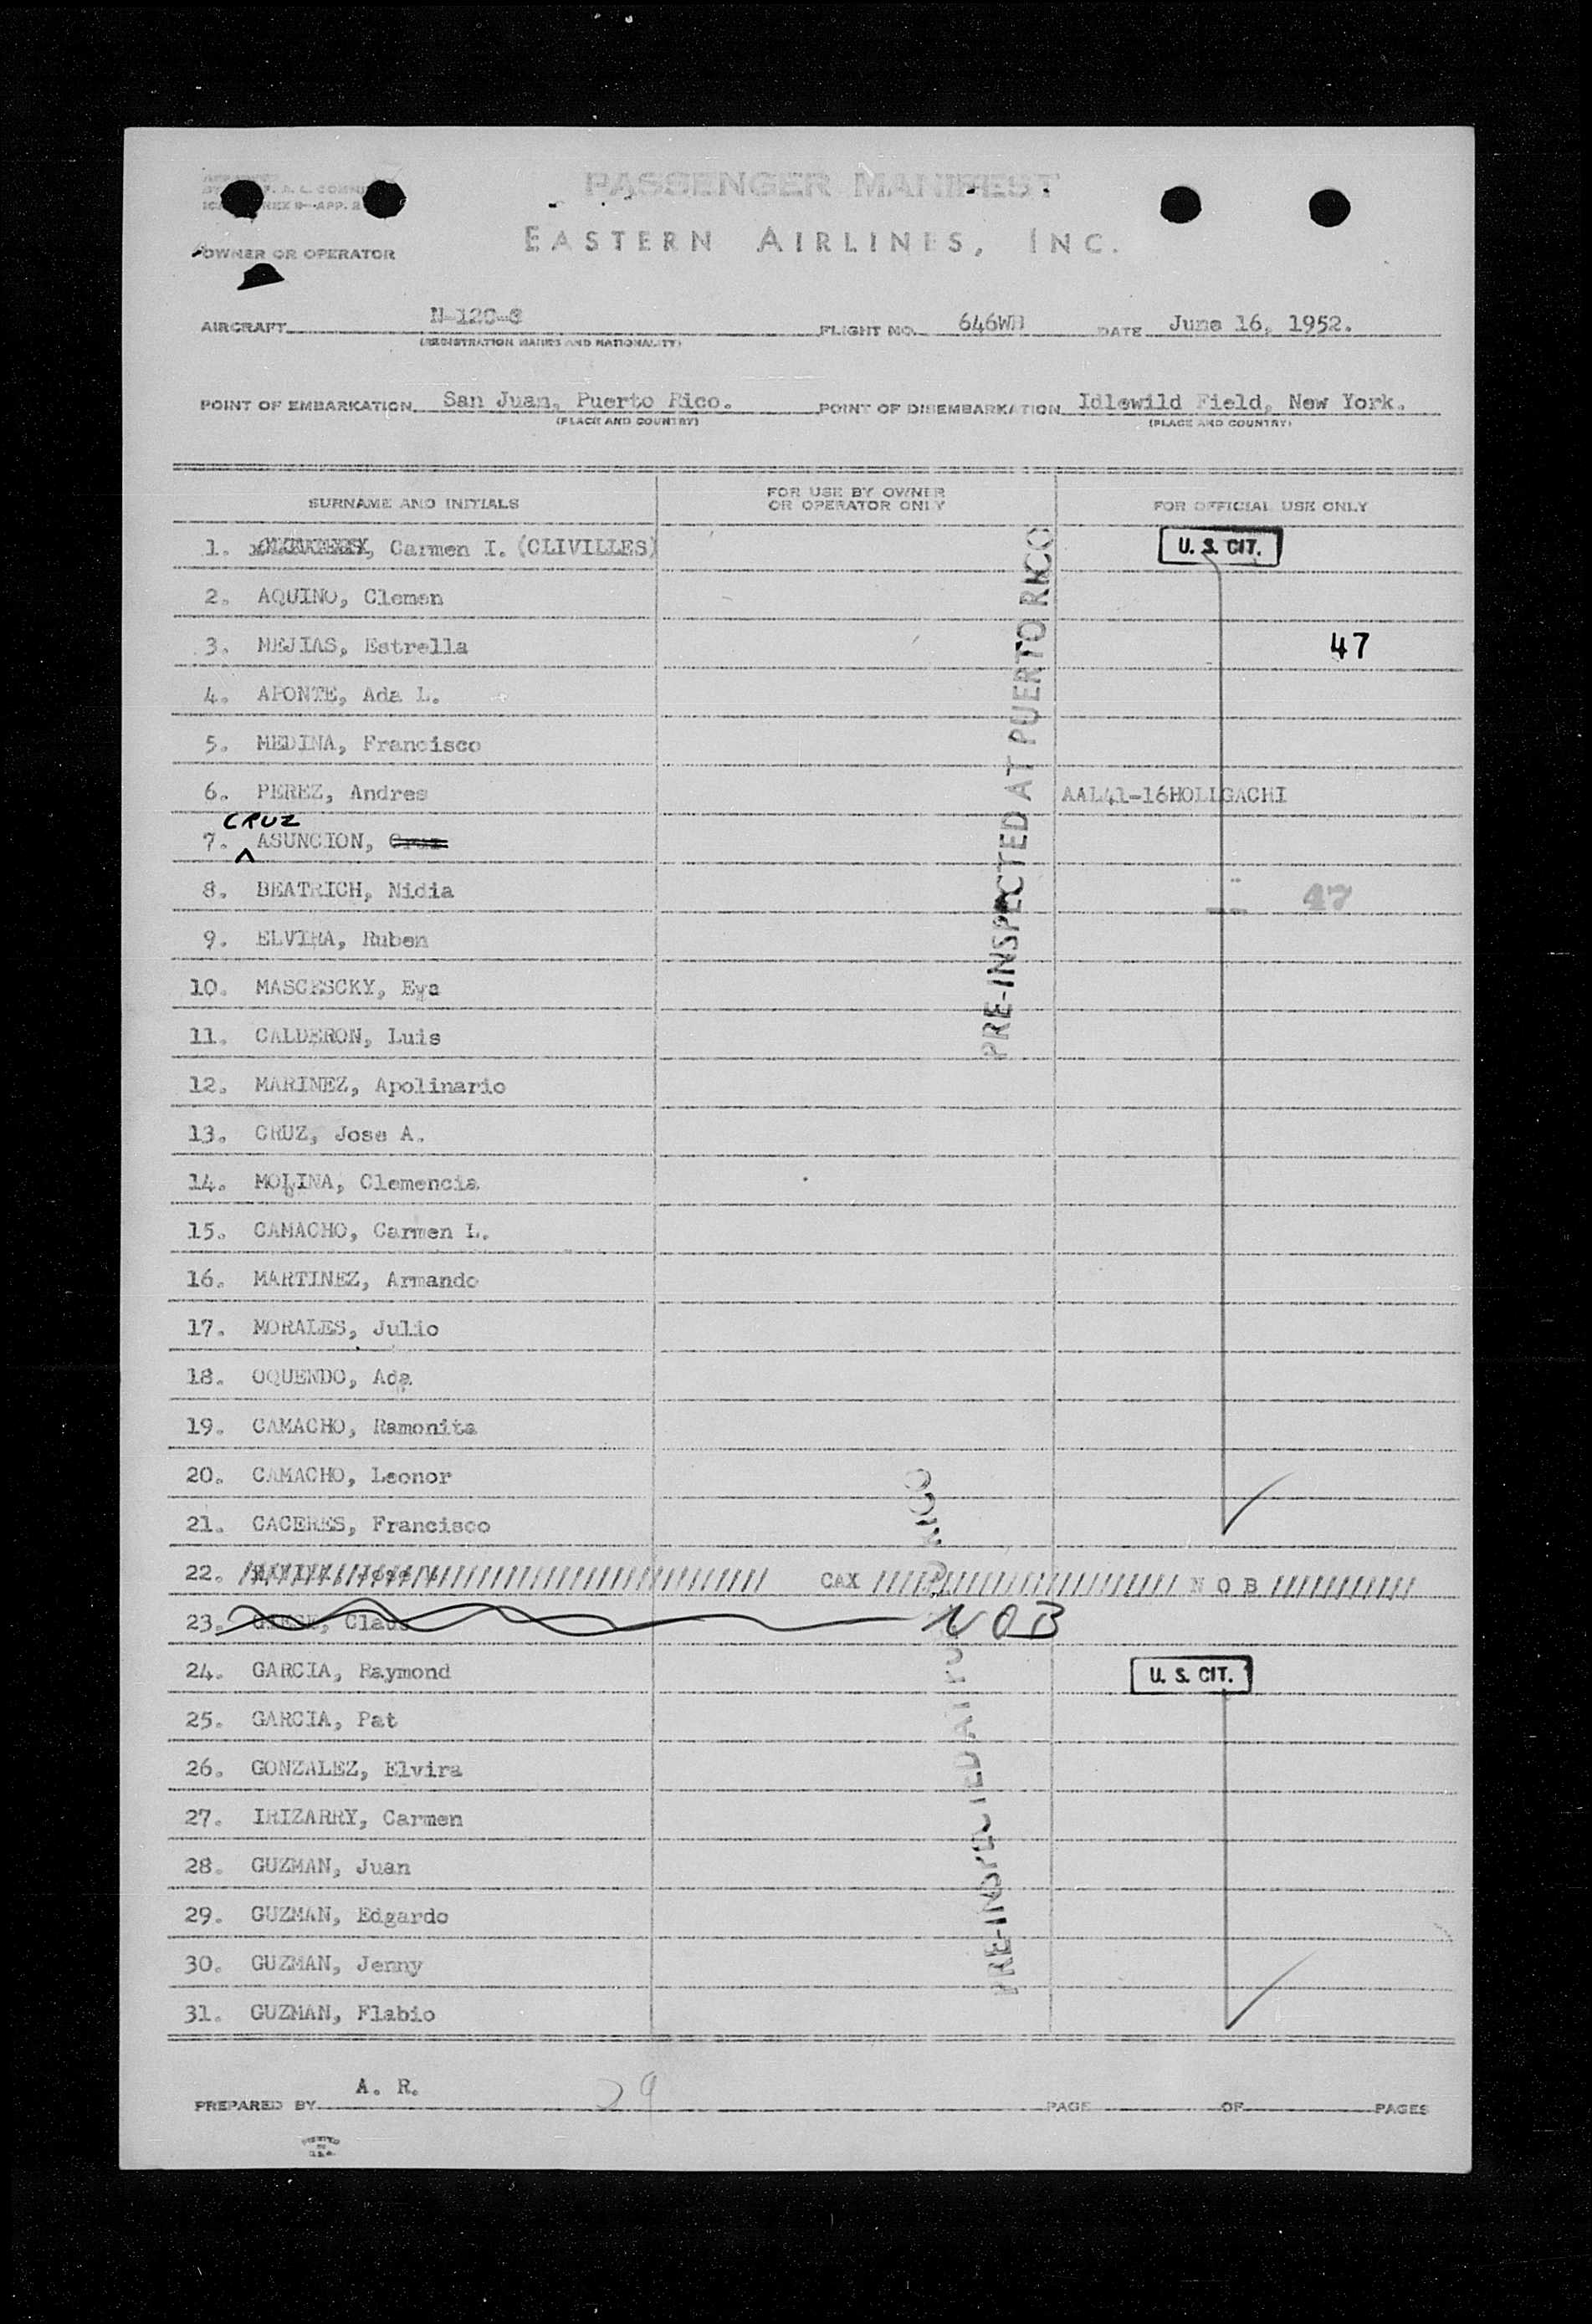 PASSENGER MANIFEST
EASTERN AIRLINES, INC.
OWNER OR OPERATOR
AIRCRAFT N-120-8 FLIGHT NO. 646WH DATE June 16, 1952.
(REGISTRATION MARKS AND NATIONALITY)
POINT OF EMBARKATION San Juan, Puerto Rico. POINT OF DISEMBARKATION Idlewild Field, New York.
(PLACE AND COUNTRY) (PLACE AND COUNTRY)
SURNAME AND INITIALS FOR USE BY OWNER OR OPERATOR ONLY FOR OFFICIAL USE ONLY
1. Carmen I. (CLIVILLES) U. S. CIT.
2. AQUINO, Clemen
3. MEJIAS, Estrella 47
4. APONTE, Ada L.
5. MEDINA, Francisco
6. PEREZ, Andres AAL41-16HOLLGACHI
7. CRUZ ASUNCION, Cruz
8. BEATRICH, Nidia 47
9. ELVIRA, Ruben
10. MASCESCKY, Eva
11. CALDERON, Luis
12. MARINEZ, Apolinario
13. CRUZ, Jose A.
14. MOLINA, Clemencia
15. CAMACHO, Carmen L.
16. MARTINEZ, Armando
17. MORALES, Julio
18. OQUENDO, Ada
19. CAMACHO, Ramonita
20. CAMACHO, Leonor
21. CACERES, Francisco
22. CAX N O B
23. NOB
24. GARCIA, Raymond U. S. CIT.
25. GARCIA, Pat
26. GONZALEZ, Elvira
27. IRIZARRY, Carmen
28. GUZMAN, Juan
29. GUZMAN, Edgardo
30. GUZMAN, Jenny
31. GUZMAN, Flabio
PRE-INSPECTED AT PUERTO RICO
PRE-INSPECTED AT PUERTO RICO
A. R. 29
PREPARED BY PAGE OF PAGES